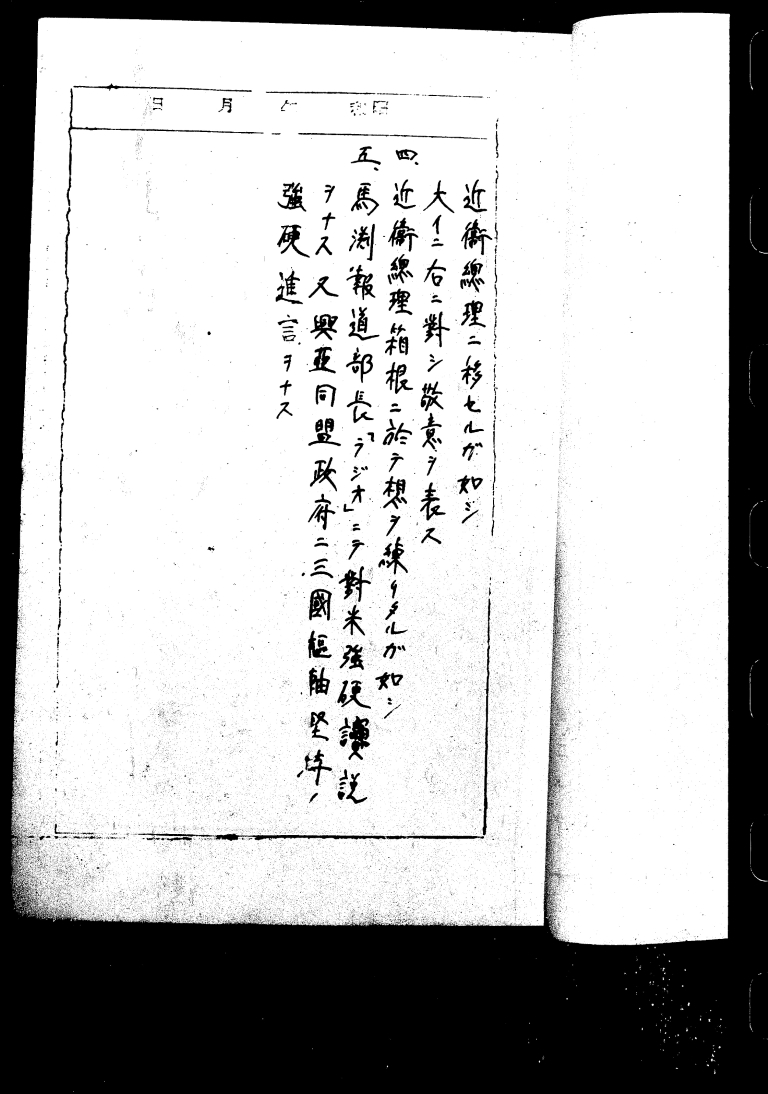 昭和 年 月 日
近衛總理ニ移セルガ如シ
大イニ右ニ對シ敬意ヲ表ス
四、近衛總理箱根ニ於テ想ヲ練リタルガ如シ
五、馬渕報道部長「ラジオ」ニテ對米強硬演説
ヲナス又興亜同盟政府ニ三國樞軸堅持ノ
強硬進言ヲナス